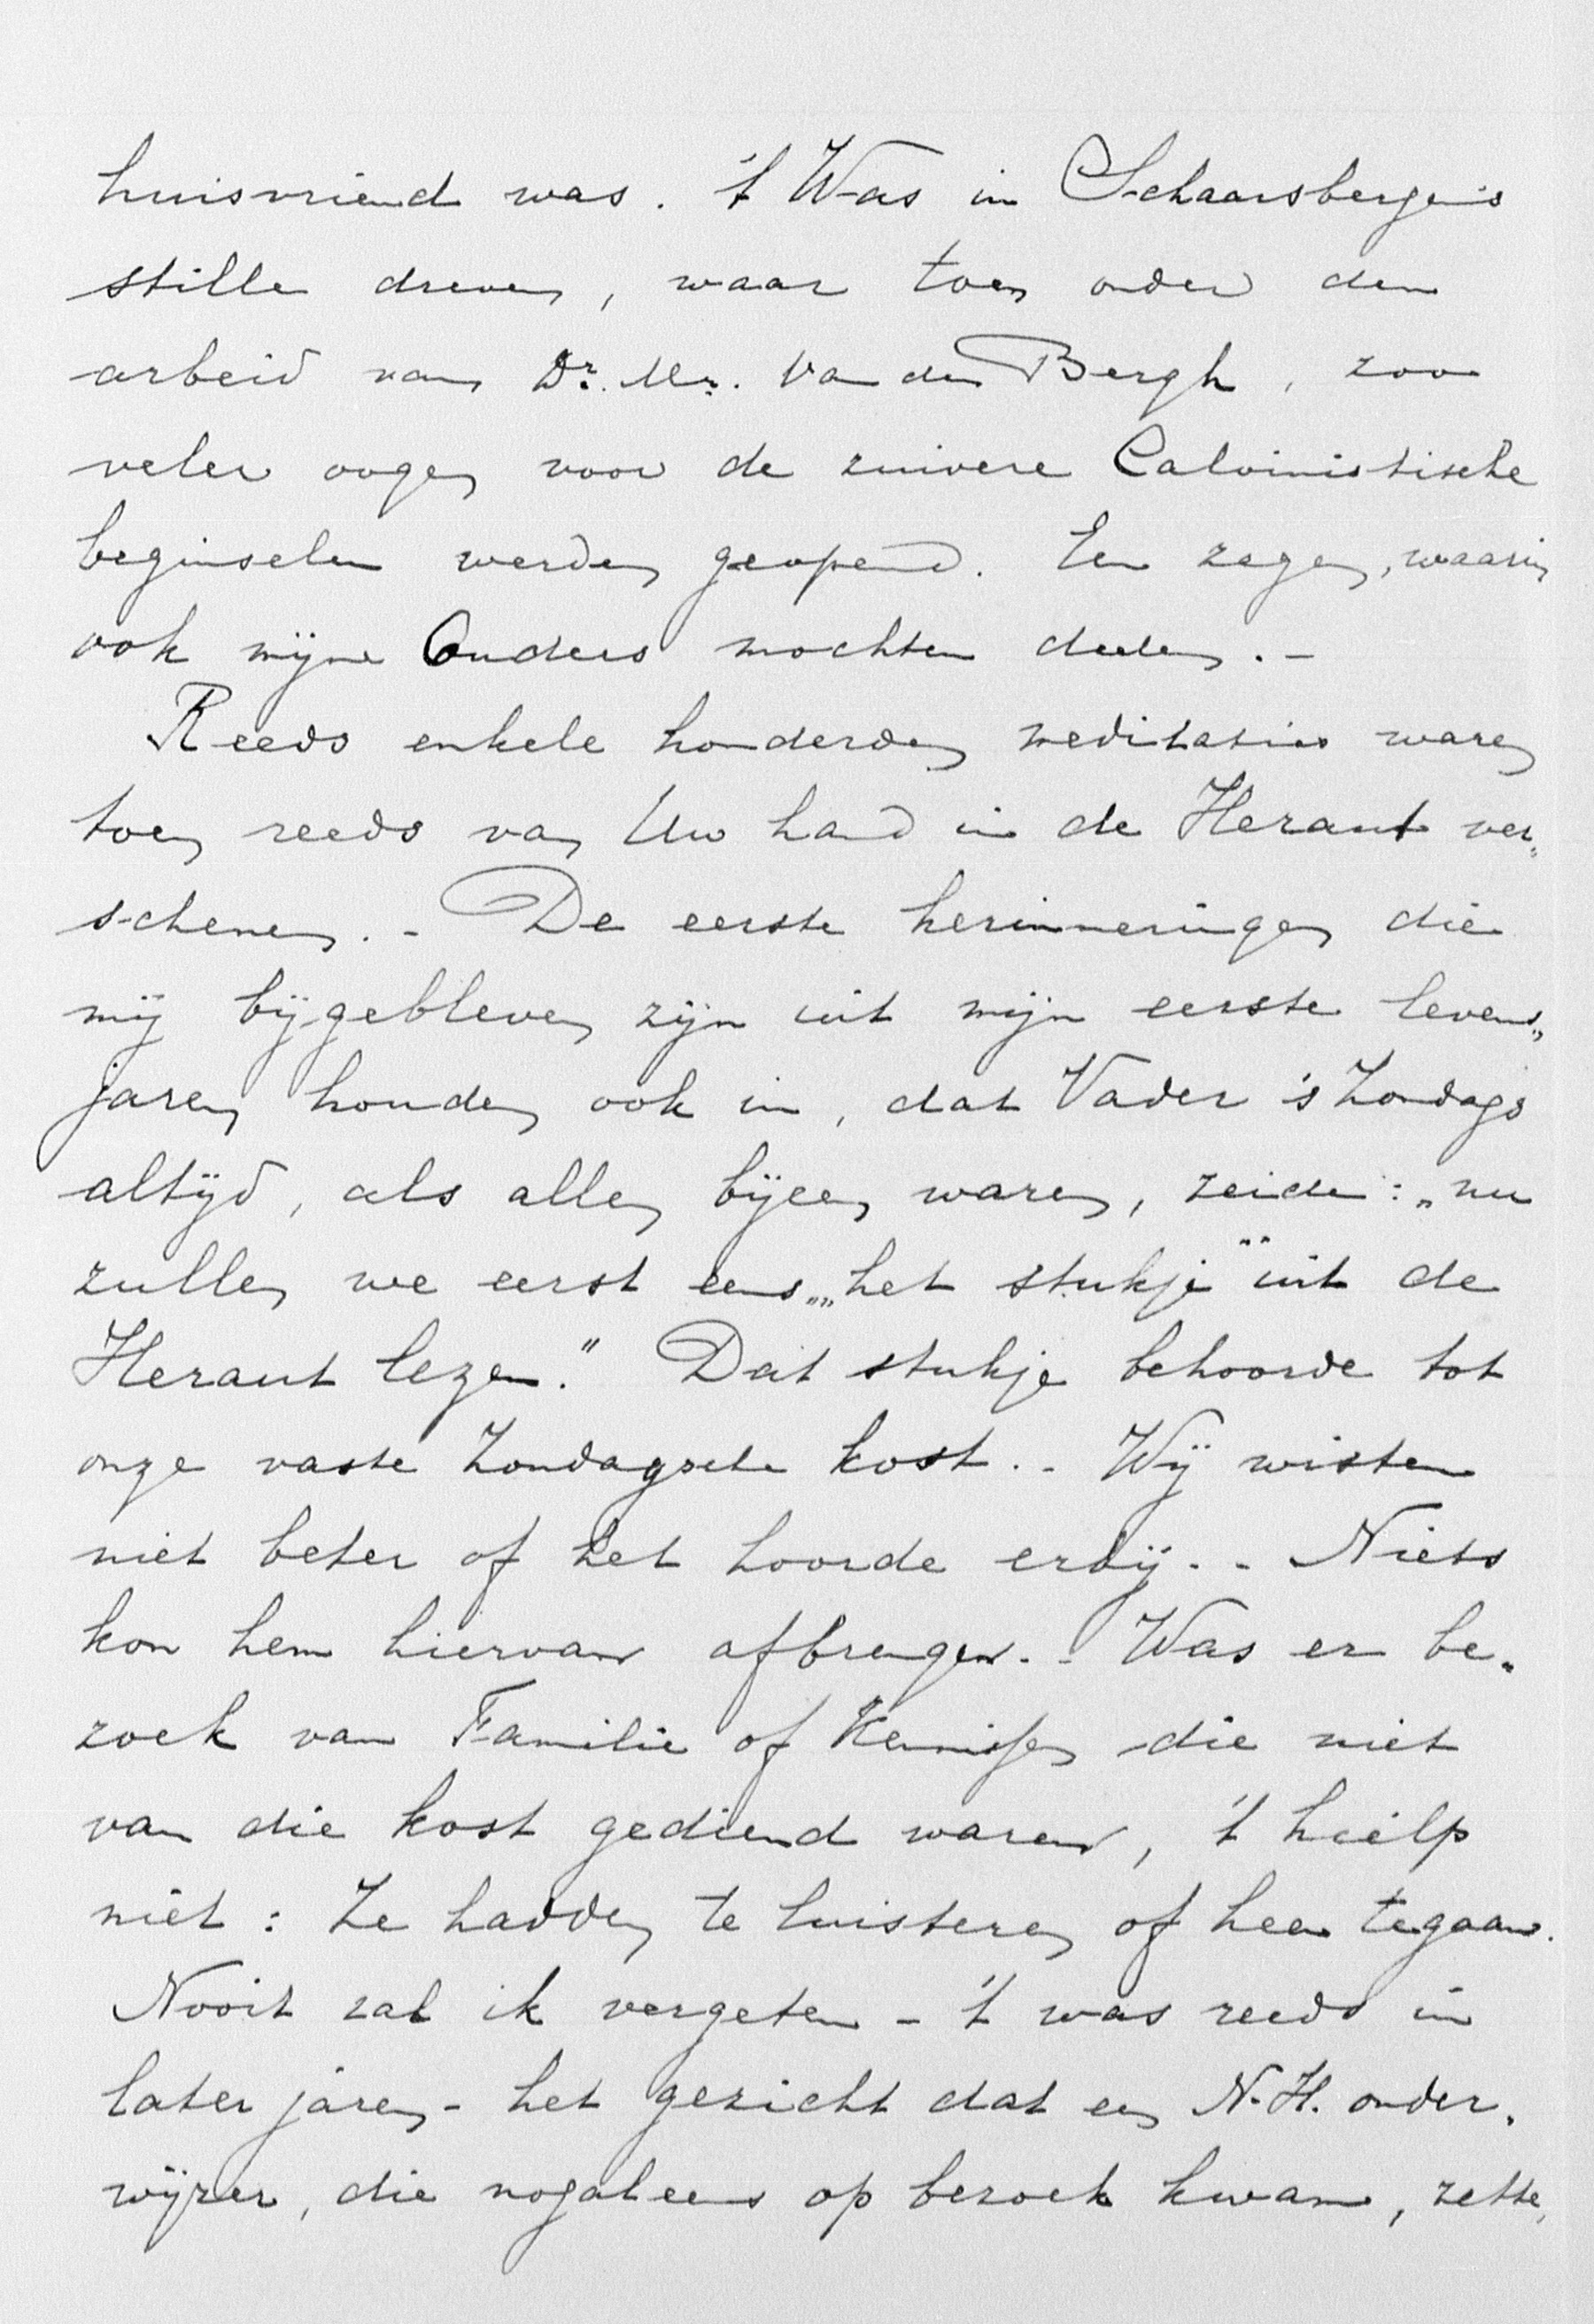 huisvriend was. 't Was in Schaarsbergen's
stille dreven, waar toen onder den
arbeid van Dr. Mr. Van den Bergh, zoo
veler oogen voor de zuivere Calvinistische
beginselen werden geopend. Een zegen, waarin
ook mijne Ouders mochten deelen. -
Reeds enkele honderden meditaties waren
toen reeds van Uw hand in de Heraut ver„
schenen. - De eerste herinneringen die
mij bijgebleven zijn uit mijn eerste levens„
jaren houden ook in, dat Vader 's Zondags
altijd, als allen bijeen waren, zeide: „nu
zullen we eerst eens „„het stukje"" uit de
Heraut lezen." Dat stukje behoorde tot
onze vaste Zondagsche kost. - Wij wisten
niet beter of het hoorde erbij. - Niets
kon hem hiervan afbrengen. - Was er be„
zoek van Familie of Kennissen die niet
van die kost gediend waren, 't hielp
niet: Ze hadden te luisteren of heen te gaan.
Nooit zal ik vergeten - 't was reeds in
later jaren - het gezicht dat een N.H. onder„
wijzer, die nogal eens op bezoek kwam, zette,